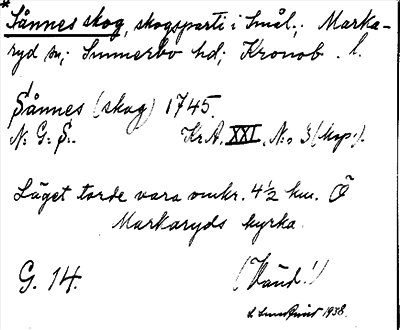 *Sånnes skog, skogsparti i Smål.; Marka-
ryd sn; Sunnerbo hd; Kronob. l.
Sånnes (skog) 1745.
N: G: S:. Kr. A. XXI, No 3 (kop.).
Läget torde vara omkr. 4½ km. Ö
Markaryds kyrka.
G. 14. (Vänd!)
1938.